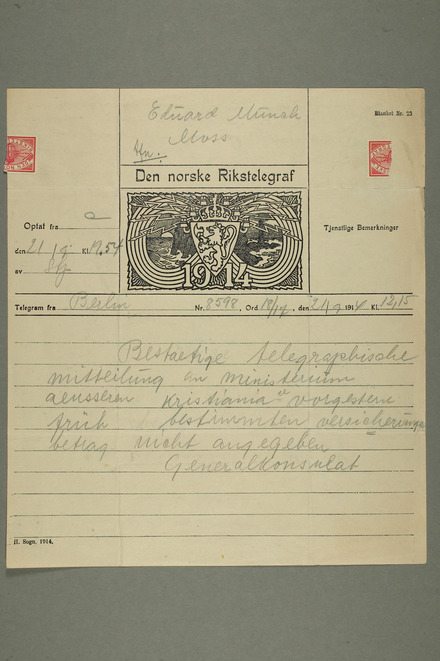 Eduard Munch
Moss
Blanket Nr. 25
Den norske Rikstelegraf
Optat fra
den 21/9 Kl. 19.54
av
Tjenstlige Bemerkninger
1914
Telegram fra Berlin Nr. 8598, Ord 18/17, den 21/9 1914 Kl. 12,15
Bestaetige telegraphische
mitteilung an ministerium
aeusseren kristiania vorgestern
früh bestimmten versicherungs
betrag nicht angegeben
Generalkonsulat
H. Sogn. 1914.